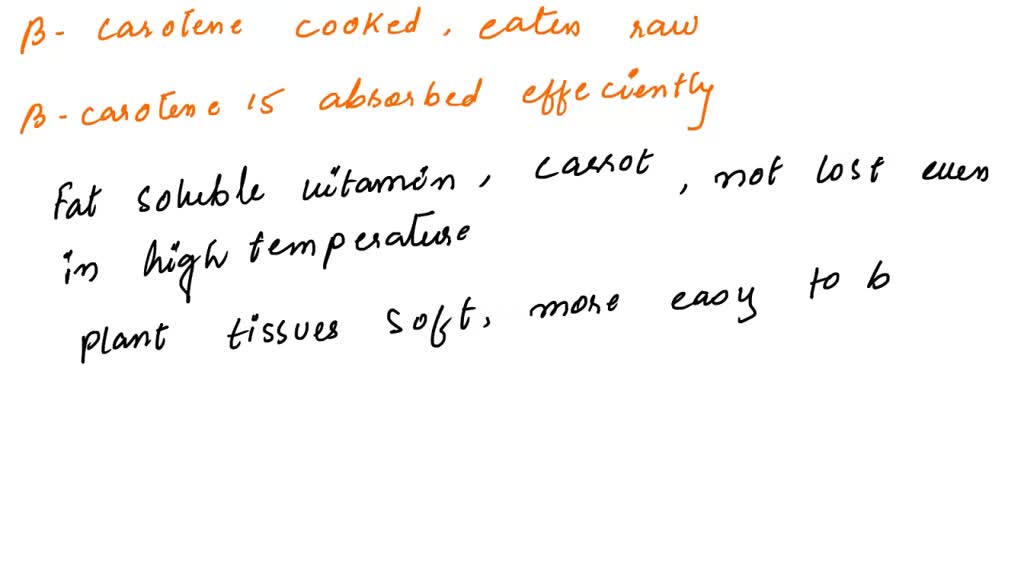 β- carotene cooked, eaten raw
β-carotene is absorbed effeciently
Fat soluble vitamin, carrot, not lost even
in high temperature
plant tissues soft, more easy to b